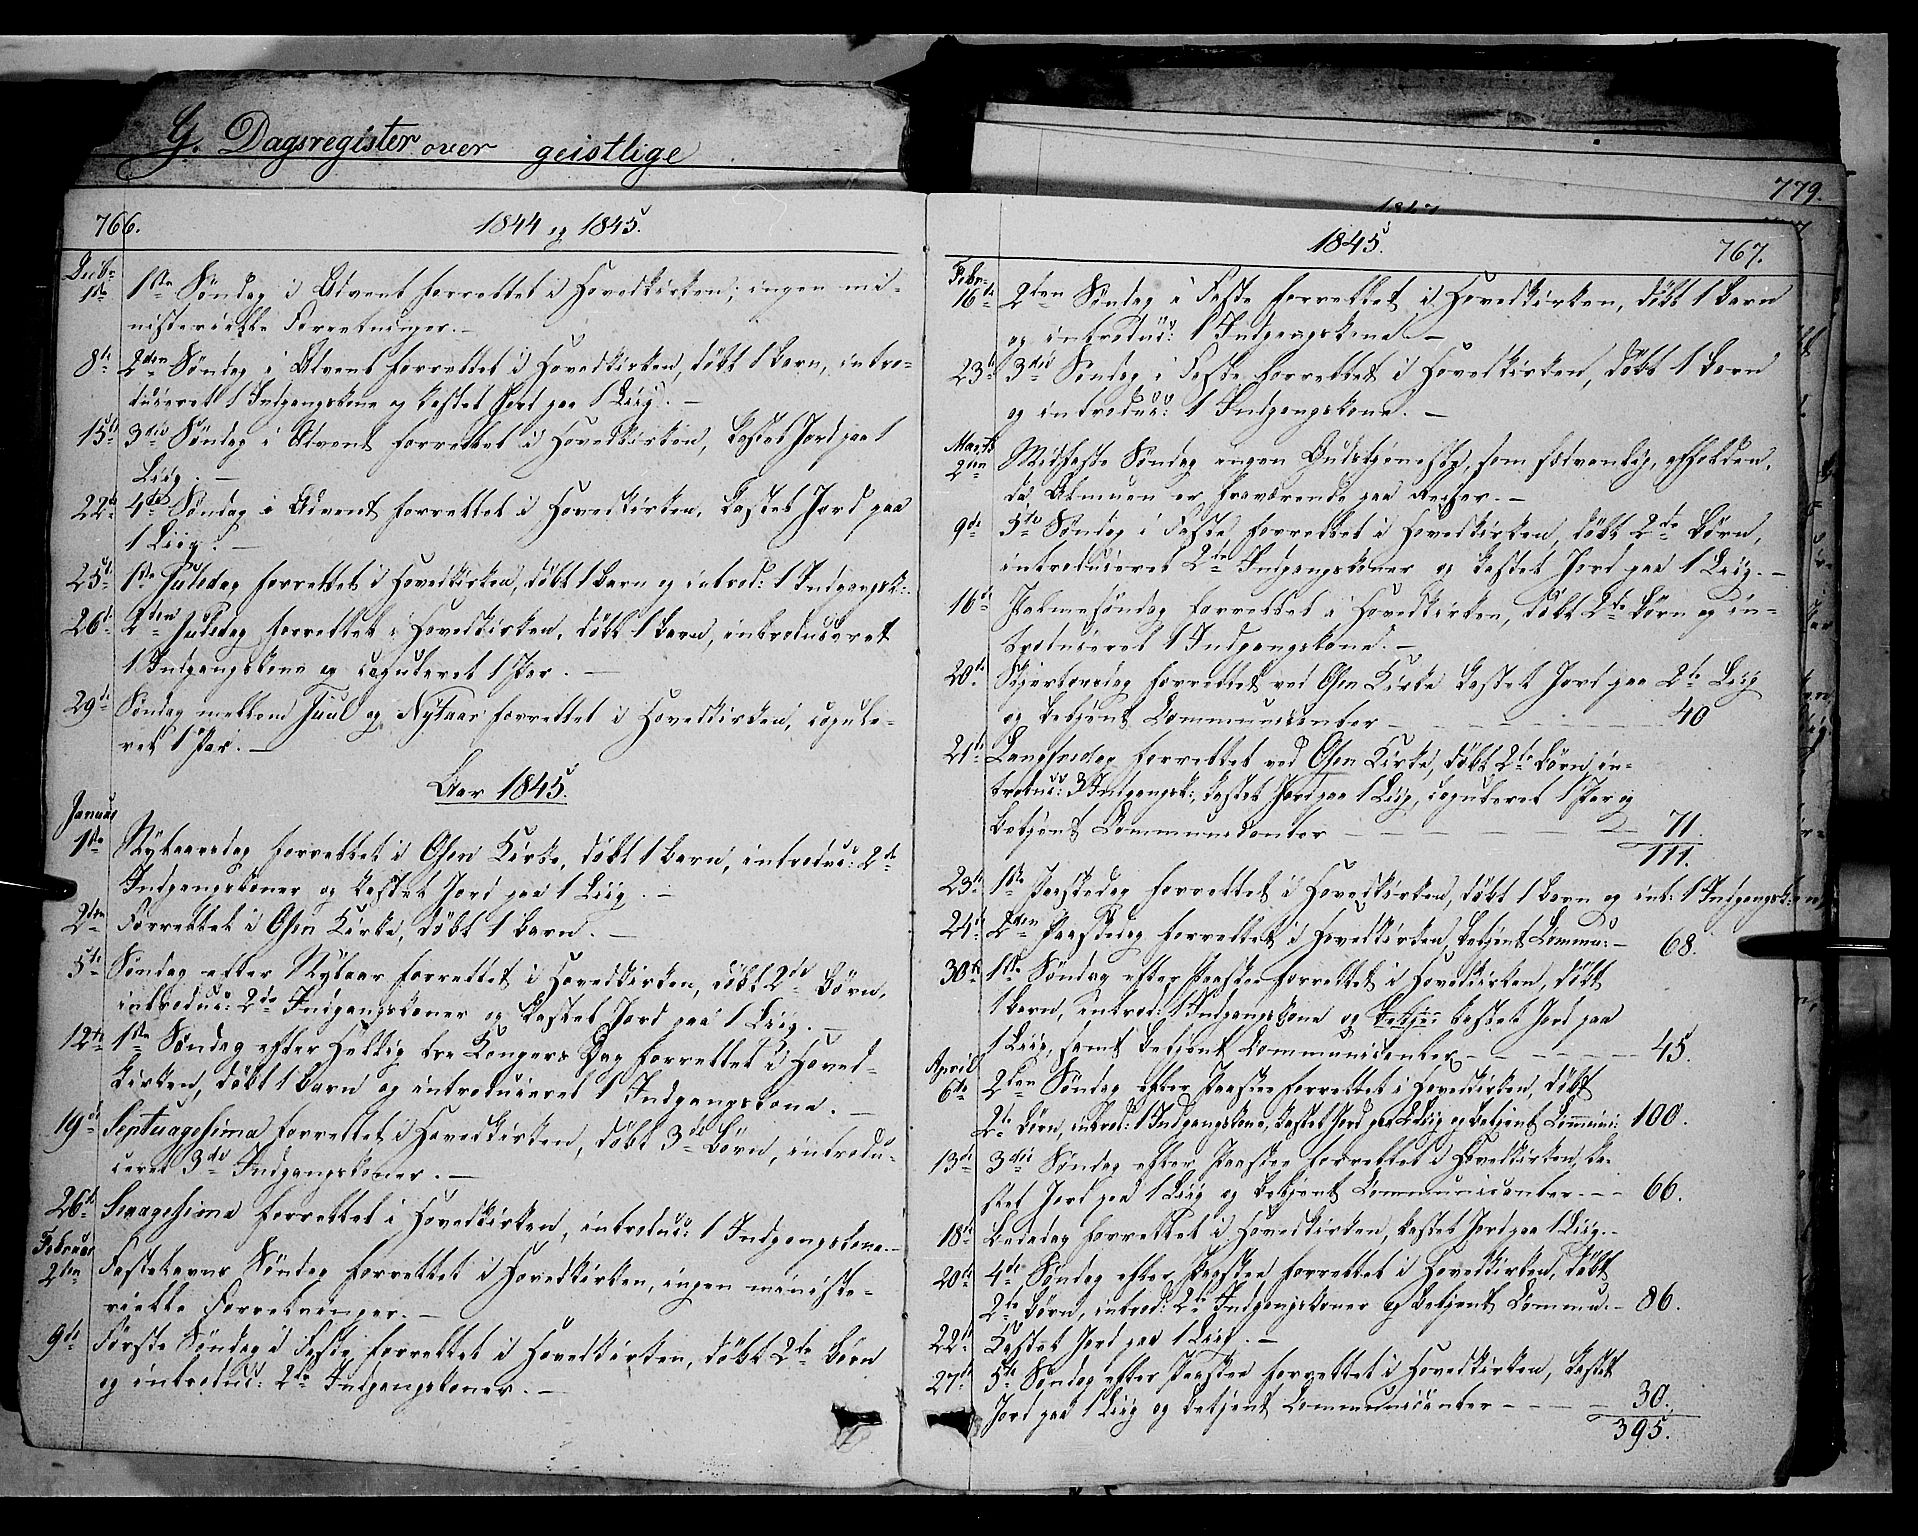 G. Dagsregister over geistlige
766.
1844 og 1845.
Decbr
1ste 1ste Søndag i Advent forrettet i Hovedkirken; ingen mi-
nisterielle Forretninger. –
8de 2den Søndag i Advent forrettet i Hovedkirken, døbt 1 Barn, intro-
duceret 1 Indgangskone og kastet Jord paa 1 Liig. –
15de 3die Søndag i Advent forrettet i Hovedkirken, kastet Jord paa 1
Liig. –
22de 4de Søndag i Advent forrettet i Hovedkirken, kastet Jord paa
1 Liig. –
25de 1ste Juledag forrettet i Hovedkirken, døbt 1 Barn og introd: 1 Indgangsk:
26de 2den Juledag forrettet i Hovedkirken, døbt 1 Barn, introduceret
1 Indgangskone og copuleret 1 Par. –
29de Søndag mellem Juul og Nytaar forrettet i Hovedkirken, copule-
ret 1 Par. –
Aar 1845.
Januar
1ste Nytaarsdag forrettet i Osen Kirke, døbt 1 Barn, introduc: 2de
Indgangskoner og kastet Jord paa 1 Liig. –
2den Forrettet i Osen Kirke, døbt 1 Barn. –
5te Søndag efter Nytaar forrettet i Hovedkirken, døbt 2de Børn,
introduc: 2de Indgangskoner og kastet Jord paa 1 Liig. –
12te 1ste Søndag efter Hellig tre Kongers Dag forrettet i Hoved-
kirken, døbt 1 Barn og introduceret 1 Indgangskone. –
19de Septuagesima forrettet i Hovedkirken, døbt 3de Børn, introdu-
ceret 3de Indgangskoner. –
26de Sexagesima forrettet i Hovedkirken, introduc: 1 Indgangskone. –
Februar
2den Fastelavns Søndag forrettet i Hovedkirken, ingen ministe-
rielle Forretninger. –
9de Første Søndag i Faste forrettet i Hovedkirken, døbt 2de Børn
og introduc: 2de Indgangskoner. –
779.
1847
1845.
767.
Febr.
16de 2den Søndag i Faste forrettet i Hovedkirken, døbt 1 Barn
og introduc: 1 Indgangskone –
23de 3die Søndag i Faste forrettet i Hovedkirken, døbt 1 Barn
og introduc: 1 Indgangskone. –
Marts
2den Midfaste Søndag ingen Gudstjeneste, som sedvanlig, afholden,
da Almuen er fraværende paa Reiser. –
9de 5te Søndag i Faste forrettet i Hovedkirken, døbt 2de Børn,
introduceret 2de Indgangskoner og kastet Jord paa 1 Liig. –
16de Palmesøndag forrettet i Hovedkirken, døbt 2de Børn og in-
troduceret 1 Indgangskone. –
20de Skjertorsdag forrettet ved Osen Kirke kastet Jord paa 2de Liig
og betjent Communicanter – – – – – 40
21de Langfredag forrettet ved Osen Kirke, døbt 2de Børn, in-
troduc: 3 Indgangsk:, kastet Jord paa 1 Liig, copuleret 1 Par og
betjent Communicanter – – – – – 71.
111.
23de 1ste Paaskedag forrettet i Hovedkirken, døbt 1 Barn og int: 1 Indgangskone,
24de 2den Paaskedag forrettet i Hovedkirken, betjent Commu: – 68.
30te 1ste Søndag efter Paaske forrettet i Hovedkirken, døbt
1 Barn, introd: 1 Indgangskone og betje: kastet Jord paa
1 Liig, samt betjent Communicanter – – – – 45.
April
6te 2den Søndag efter Paaske forrettet i Hovedkirken, døbt
2de Børn, introd: 1 Indgangskone, kastet Jord paa Liig og betjent Commini: 100.
13de 3die Søndag efter Paaske forrettet i Hovedkirken, ka-
stet Jord paa 1 Liig og betjent Communicanter. – – 66.
18de Bededag forrettet i Hovedkirken, kastet Jord paa 1 Liig. –
20de 4de Søndag efter Paaske forrettet i Hovedkirken, døbt
2de Børn, introd: 2de Indgangskoner og betjent Commu. – 86.
22de Kastet Jord paa 1 Liig. –
27de 5te Søndag efter Paaske forrettet i Hovedkirken, kastet
Jord paa 1 Liig og betjent Communicanter – – – – 30.
395.